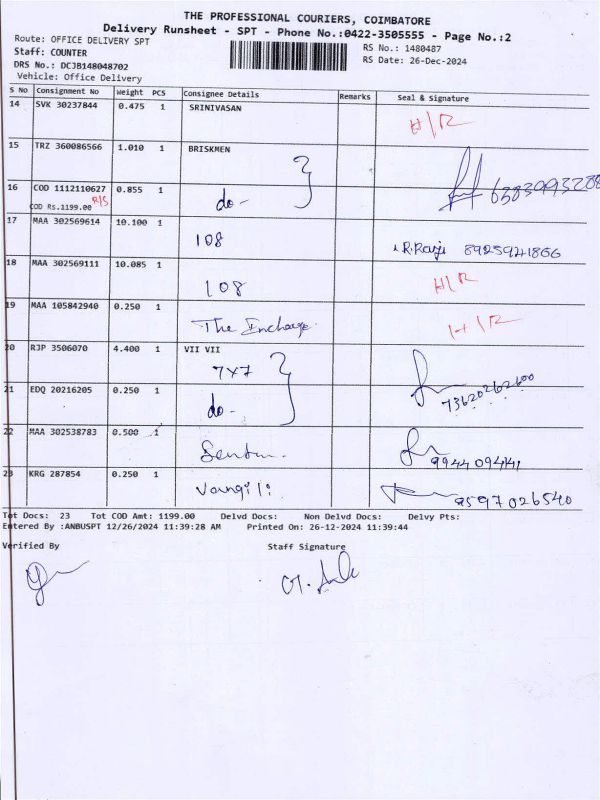 THE PROFESSIONAL COURIERS, COIMBATORE
Delivery Runsheet - SPT - Phone No.:0422-3505555 - Page No.:2
Route: OFFICE DELIVERY SPT
RS No.: 1480487
Staff: COUNTER
RS Date: 26-Dec-2024
DRS No.: DCJB148048702
Vehicle: Office Delivery
S No Consignment No Weight PCS Consignee Details Remarks Seal & Signature
14 SVK 30237844 0.475 1 SRINIVASAN
H/R
15 TRZ 360086566 1.010 1 BRISKMEN
16 COD 1112110627 0.855 1 do-
6383993288
COD Rs.1199.00 R/S
17 MAA 302569614 10.100 1 108
R.Raji 8925941866
18 MAA 302569111 10.085 1 108
H/R
19 MAA 105842940 0.250 1 The Encharge.
H/R
20 RJP 3506070 4.400 1 VII VII
7x7
73620262600
21 EDQ 20216205 0.250 1 do-
22 MAA 302538783 0.500 1
9944094141
23 KRG 287854 0.250 1
9597026540
Tot Docs: 23 Tot COD Amt: 1199.00 Delvd Docs: Non Delvd Docs: Delvy Pts:
Entered By :ANBUSPT 12/26/2024 11:39:28 AM Printed On: 26-12-2024 11:39:44
Verified By Staff Signature